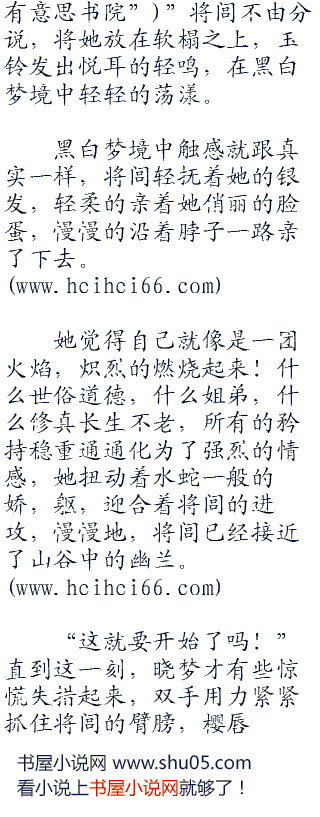 有意思书院”)”将闾不由分
说，将她放在软榻之上，玉
铃发出悦耳的轻鸣，在黑白
梦境中轻轻的荡漾。
黑白梦境中触感就跟真
实一样，将闾轻抚着她的银
发，轻柔的亲着她俏丽的脸
蛋，慢慢的沿着脖子一路亲
了下去。
(www.hcihci66.com)
她觉得自己就像是一团
火焰，炽烈的燃烧起来！什
么世俗道德，什么姐弟，什
么修真长生不老，所有的矜
持稳重通通化为了强烈的情
感，她扭动着水蛇一般的
娇，躯，迎合着将闾的进
攻，慢慢地，将闾已经接近
了山谷中的幽兰。
(www.hcihci66.com)
“这就要开始了吗！”
直到这一刻，晓梦才有些惊
慌失措起来，双手用力紧紧
抓住将闾的臂膀，樱唇
书屋小说网 www.shu05.com
看小说上书屋小说网就够了！